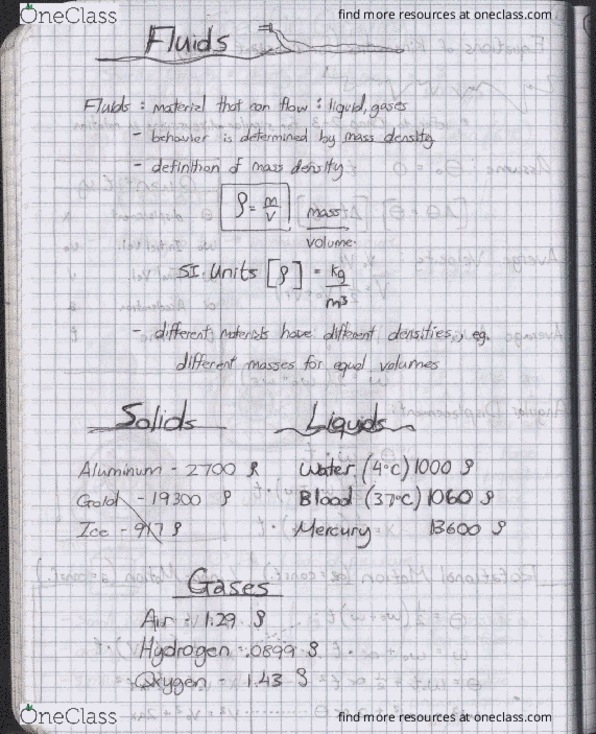 OneClass
find more resources at oneclass.com
Fluids
Fluids : material that can flow : liquid, gases
- behavior is determined by mass density
- definition of mass density
ρ = m/V mass
volume
SI. Units [ρ] = kg
m³
- different materials have different densities, eg.
different masses for equal volumes
Solids Liquids
Aluminum - 2700 ρ Water (4°C) 1000 ρ
Gold - 19300 ρ Blood (37°C) 1060 ρ
Ice - 917 ρ Mercury 13600 ρ
Gases
Air - 1.29 ρ
Hydrogen - .0899 ρ
Oxygen - 1.43 ρ
OneClass
find more resources at oneclass.com